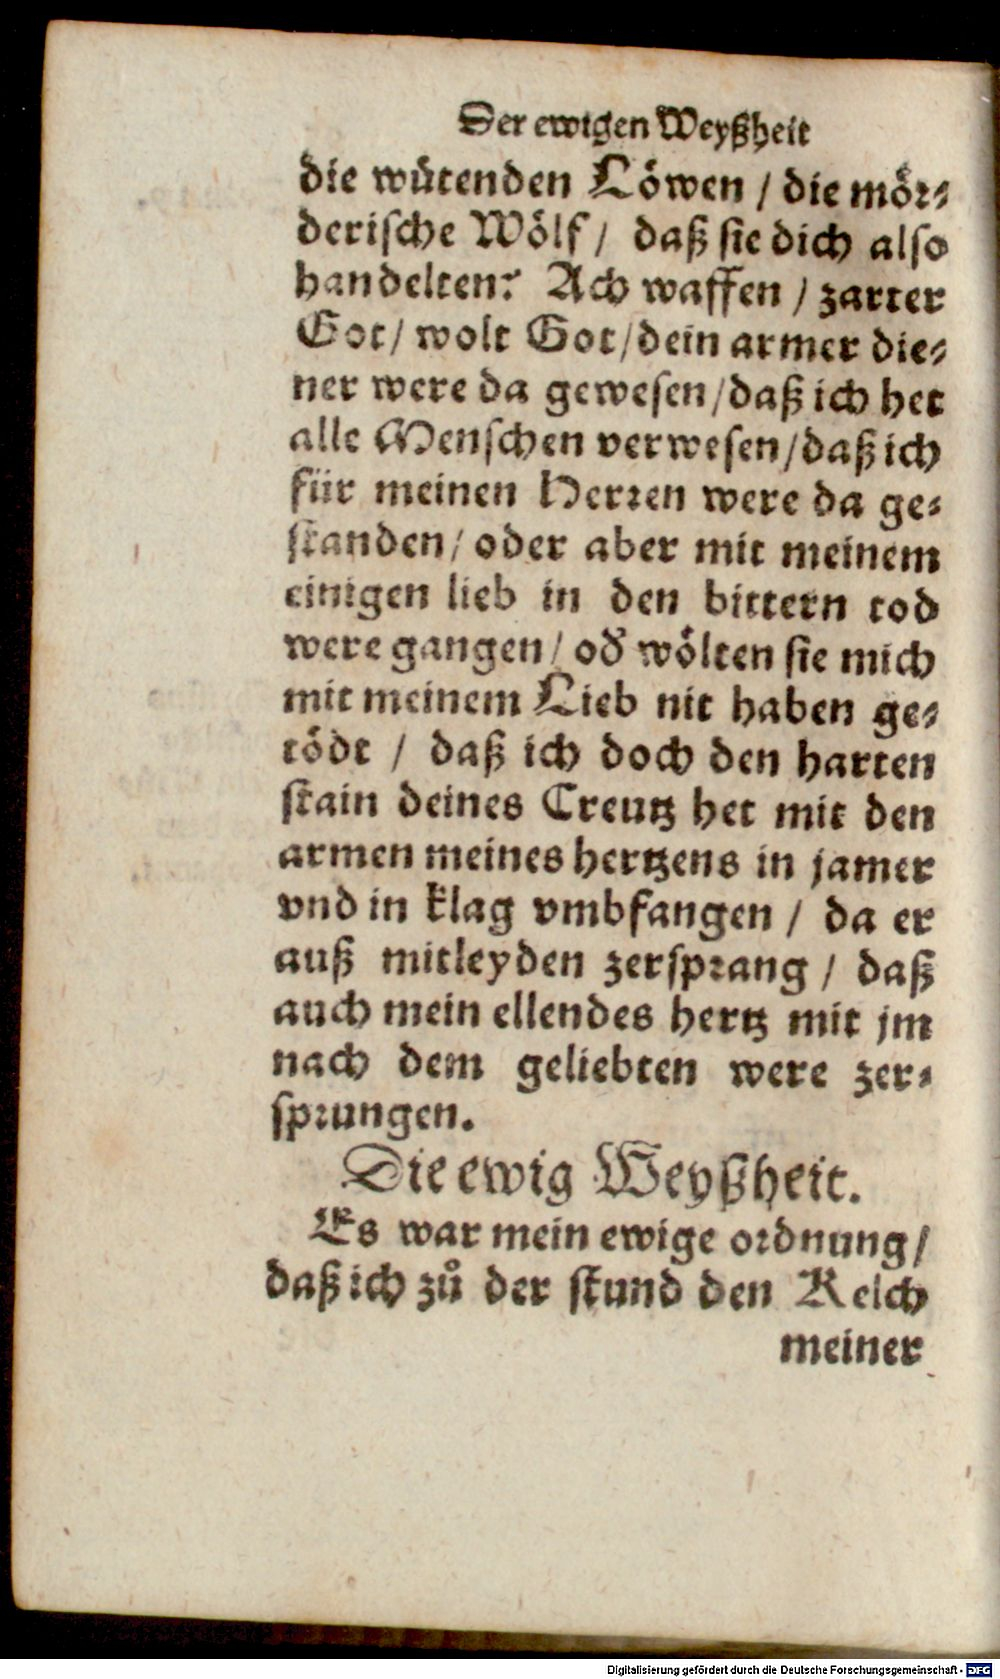 Der ewigen Weyßheit
die wütenden Löwen / die mör-
derische Wölf / daß sie dich also
handelten? Ach waffen / zarter
Got / wolt Got / dein armer die-
ner were da gewesen / daß ich het
alle Menschen verwesen / daß ich
für meinen Herren were da ge-
standen / oder aber mit meinem
einigen lieb in den bittern tod
were gangen / oď wölten sie mich
mit meinem Lieb nit haben ge-
tödt / daß ich doch den harten
stain deines Creutz het mit den
armen meines hertzens in jamer
vnd in klag vmbfangen / da er
auß mitleyden zersprang / daß
auch mein ellendes hertz mit jm
nach dem geliebten were zer-
sprungen.
Die ewig Weyßheit.
Es war mein ewige ordnung /
daß ich zů der stund den Kelch
meiner
Digitalisierung gefördert durch die Deutsche Forschungsgemeinschaft - DFG